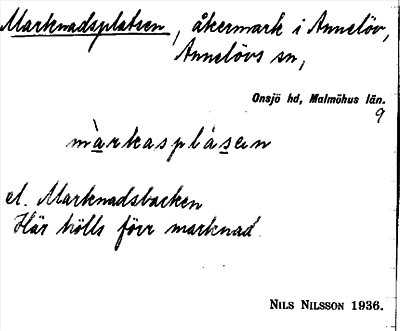 Marknadsplatsen, åkermark i Annelöv,
Annelövs sn,
Onsjö hd, Malmöhus län.
9
màrkasplásen
el. Marknadsbacken
Här hölls förr marknad.
NILS NILSSON 1936.